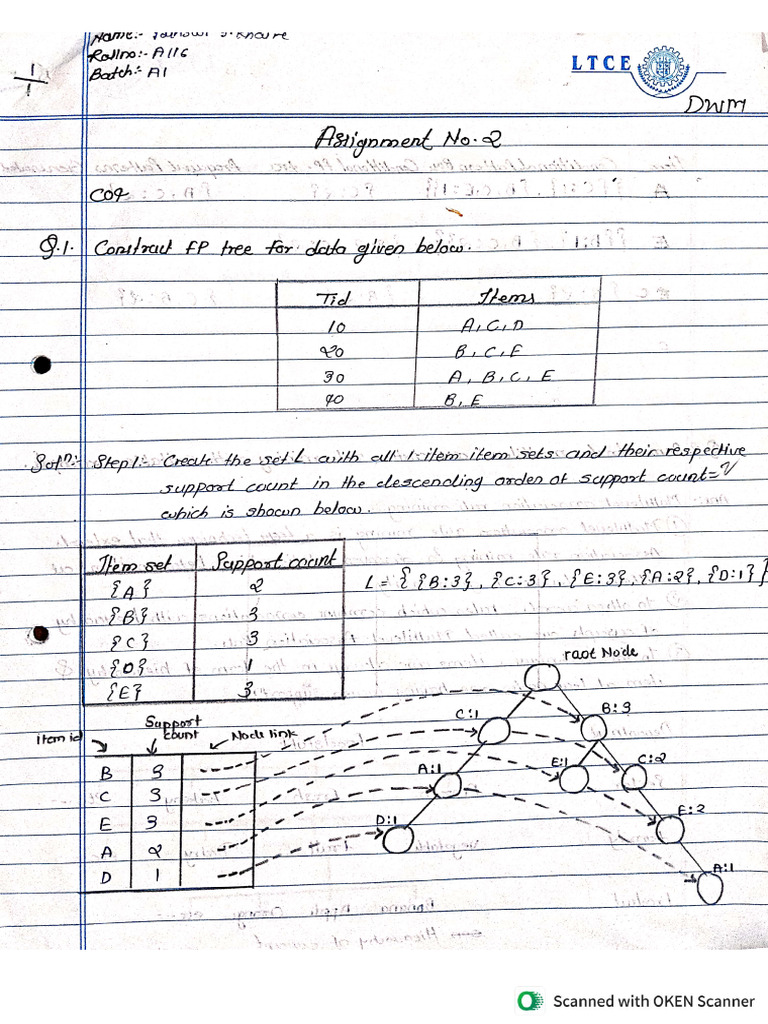 Name:-
Rollno:- A116
Batch:- A1
1
1
LTCE
DWM
Assignment No. 2
CO4
Q.1. Construct FP tree for data given below.
Tid Items
10 A, C, D
20 B, C, E
30 A, B, C, E
40 B, E
Soln:- Step1:- Create the set L with all 1 item item sets and their respective
support count in the descending order of support count=2
which is shown below.
Item set Support count
{A} 2
{B} 3
{C} 3
{D} 1
{E} 3
L = { {B:3}, {C:3}, {E:3}, {A:2}, {D:1} }
root Node
C:1
B:3
A:1
E:1
C:2
D:1
E:2
A:1
Item id
Support count
Node link
B 3
C 3
E 3
A 2
D 1
Scanned with OKEN Scanner